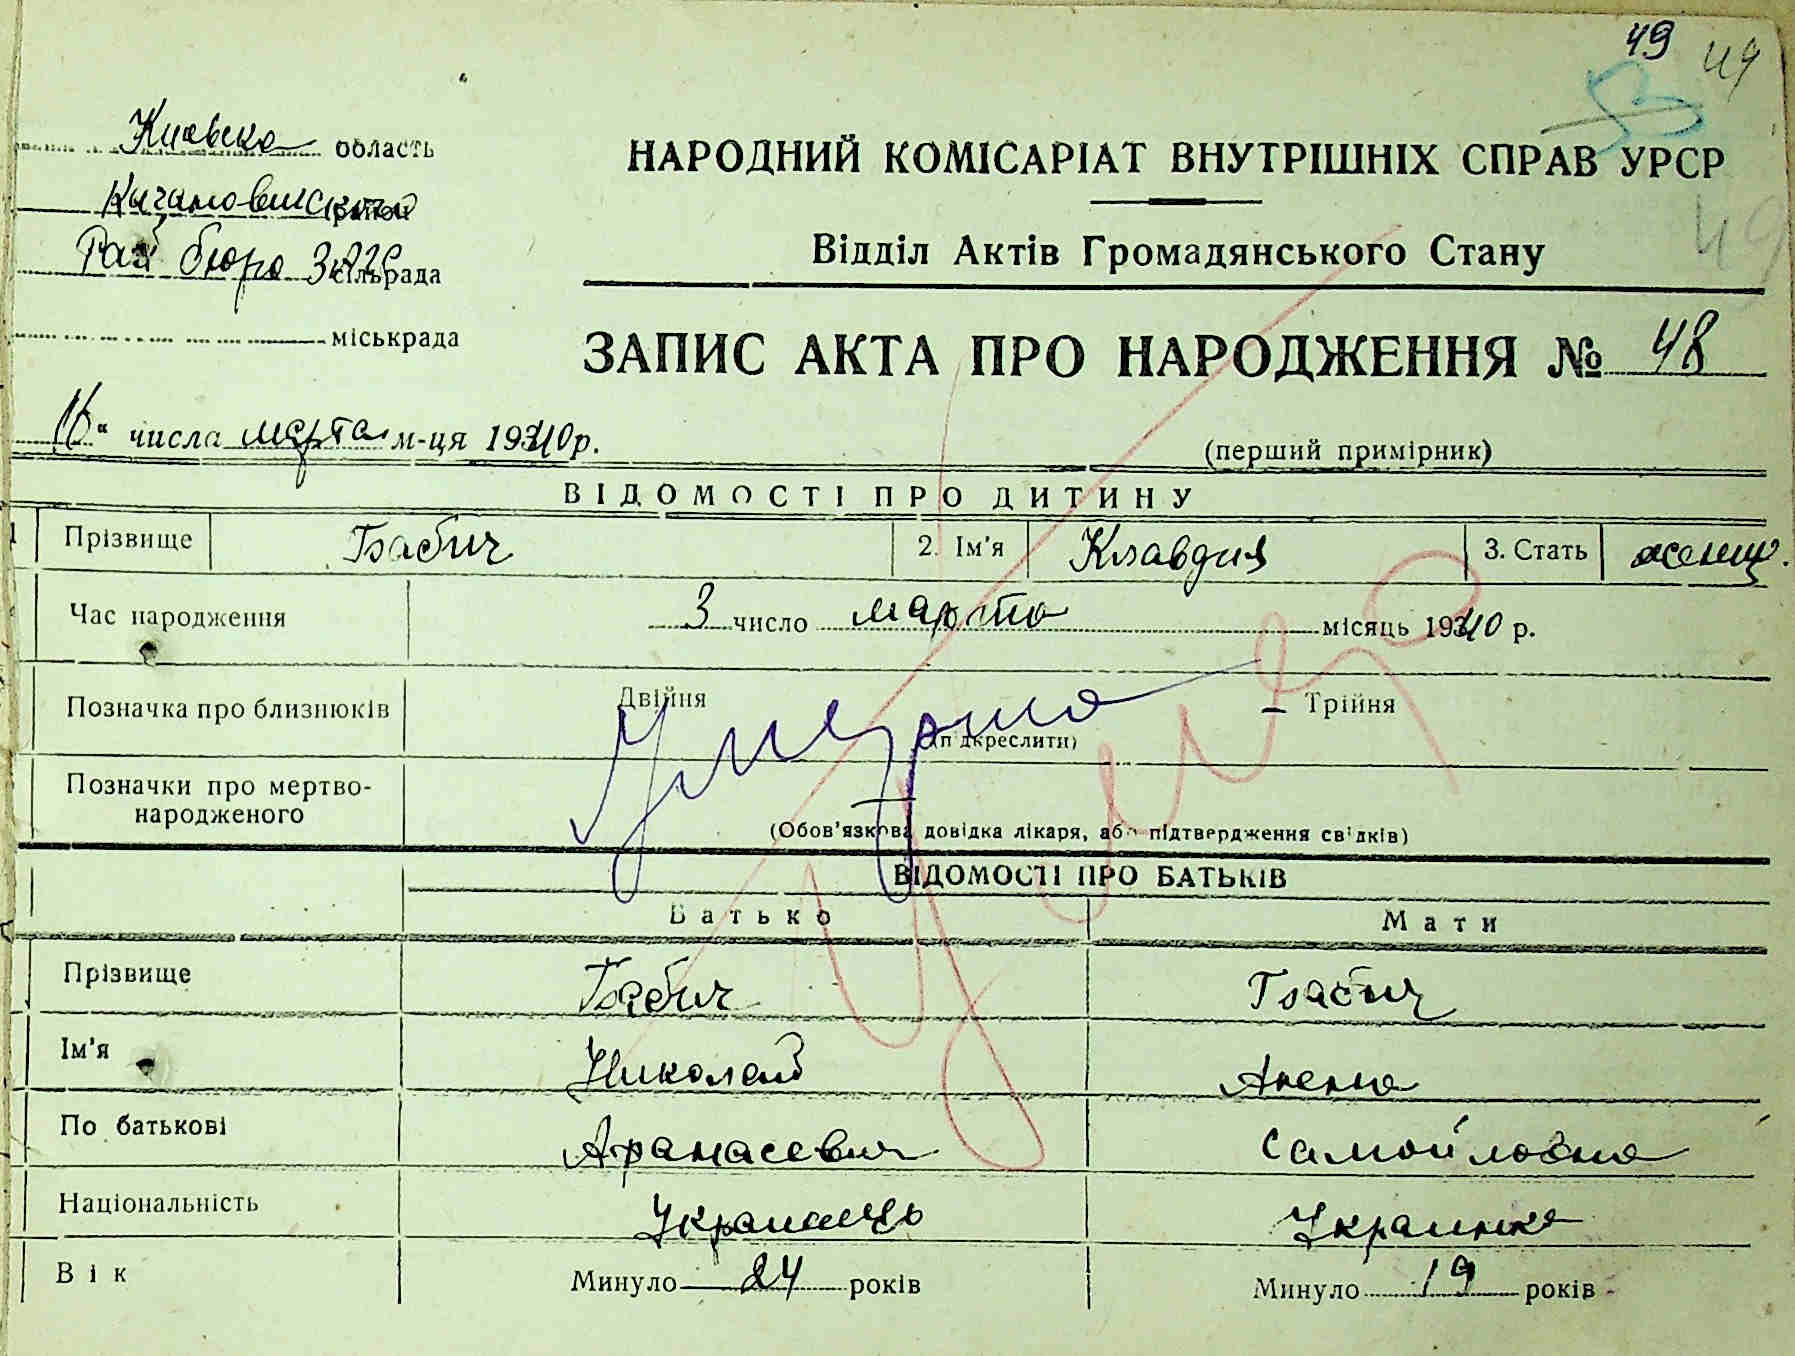 49 49
Киевска область
Кагановический район
Рай бюро ЗАГС сільрада
міськрада
НАРОДНИЙ КОМІСАРІАТ ВНУТРІШНІХ СПРАВ УРСР
49
Відділ Актів Громадянського Стану
ЗАПИС АКТА ПРО НАРОДЖЕННЯ № 48
16 " числа марта м-ця 1940 р.
(перший примірник)
ВІДОМОСТІ ПРО ДИТИНУ
1 Прізвище Бабич 2. Ім'я Клавдия 3. Стать женщ.
Час народження 3 число марта місяць 1940 р.
Позначка про близнюків Двійня — Трійня
(підкреслити)
Умерша
Позначки про мертво-
народженого
(Обов'язкова довідка лікаря, або підтвердження свідків)
ВІДОМОСТІ ПРО БАТЬКІВ
Батько Мати
Прізвище Бабич Бабич
Ім'я Николай
По батькові Афанасевич Самойловна
Національність Украинець Украинка
Вік Минуло 24 років Минуло 19 років